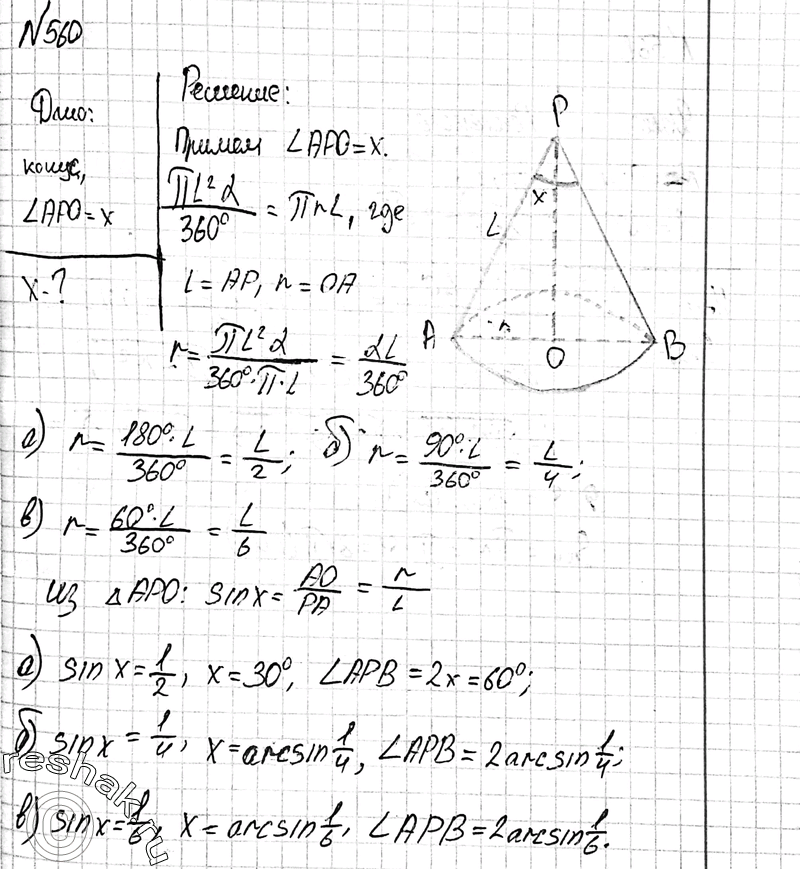 N560
Дано:
конус,
∠APO = x
x - ?
Решение:
Примем ∠APO = x.
πL²α/360° = πrL, где
L = AP, r = OA
r = πL²α/(360°·π·L) = αL/360°
P
x
L
A
r
O
B
а) r = 180°·L/360° = L/2; б) r = 90°·L/360° = L/4;
в) r = 60°·L/360° = L/6
из △APO: sin x = AO/PA = r/L
а) sin x = 1/2, x = 30°, ∠APB = 2x = 60°;
б) sin x = 1/4, x = arcsin 1/4, ∠APB = 2arcsin 1/4;
в) sin x = 1/6, x = arcsin 1/6, ∠APB = 2arcsin 1/6.
reshak.ru